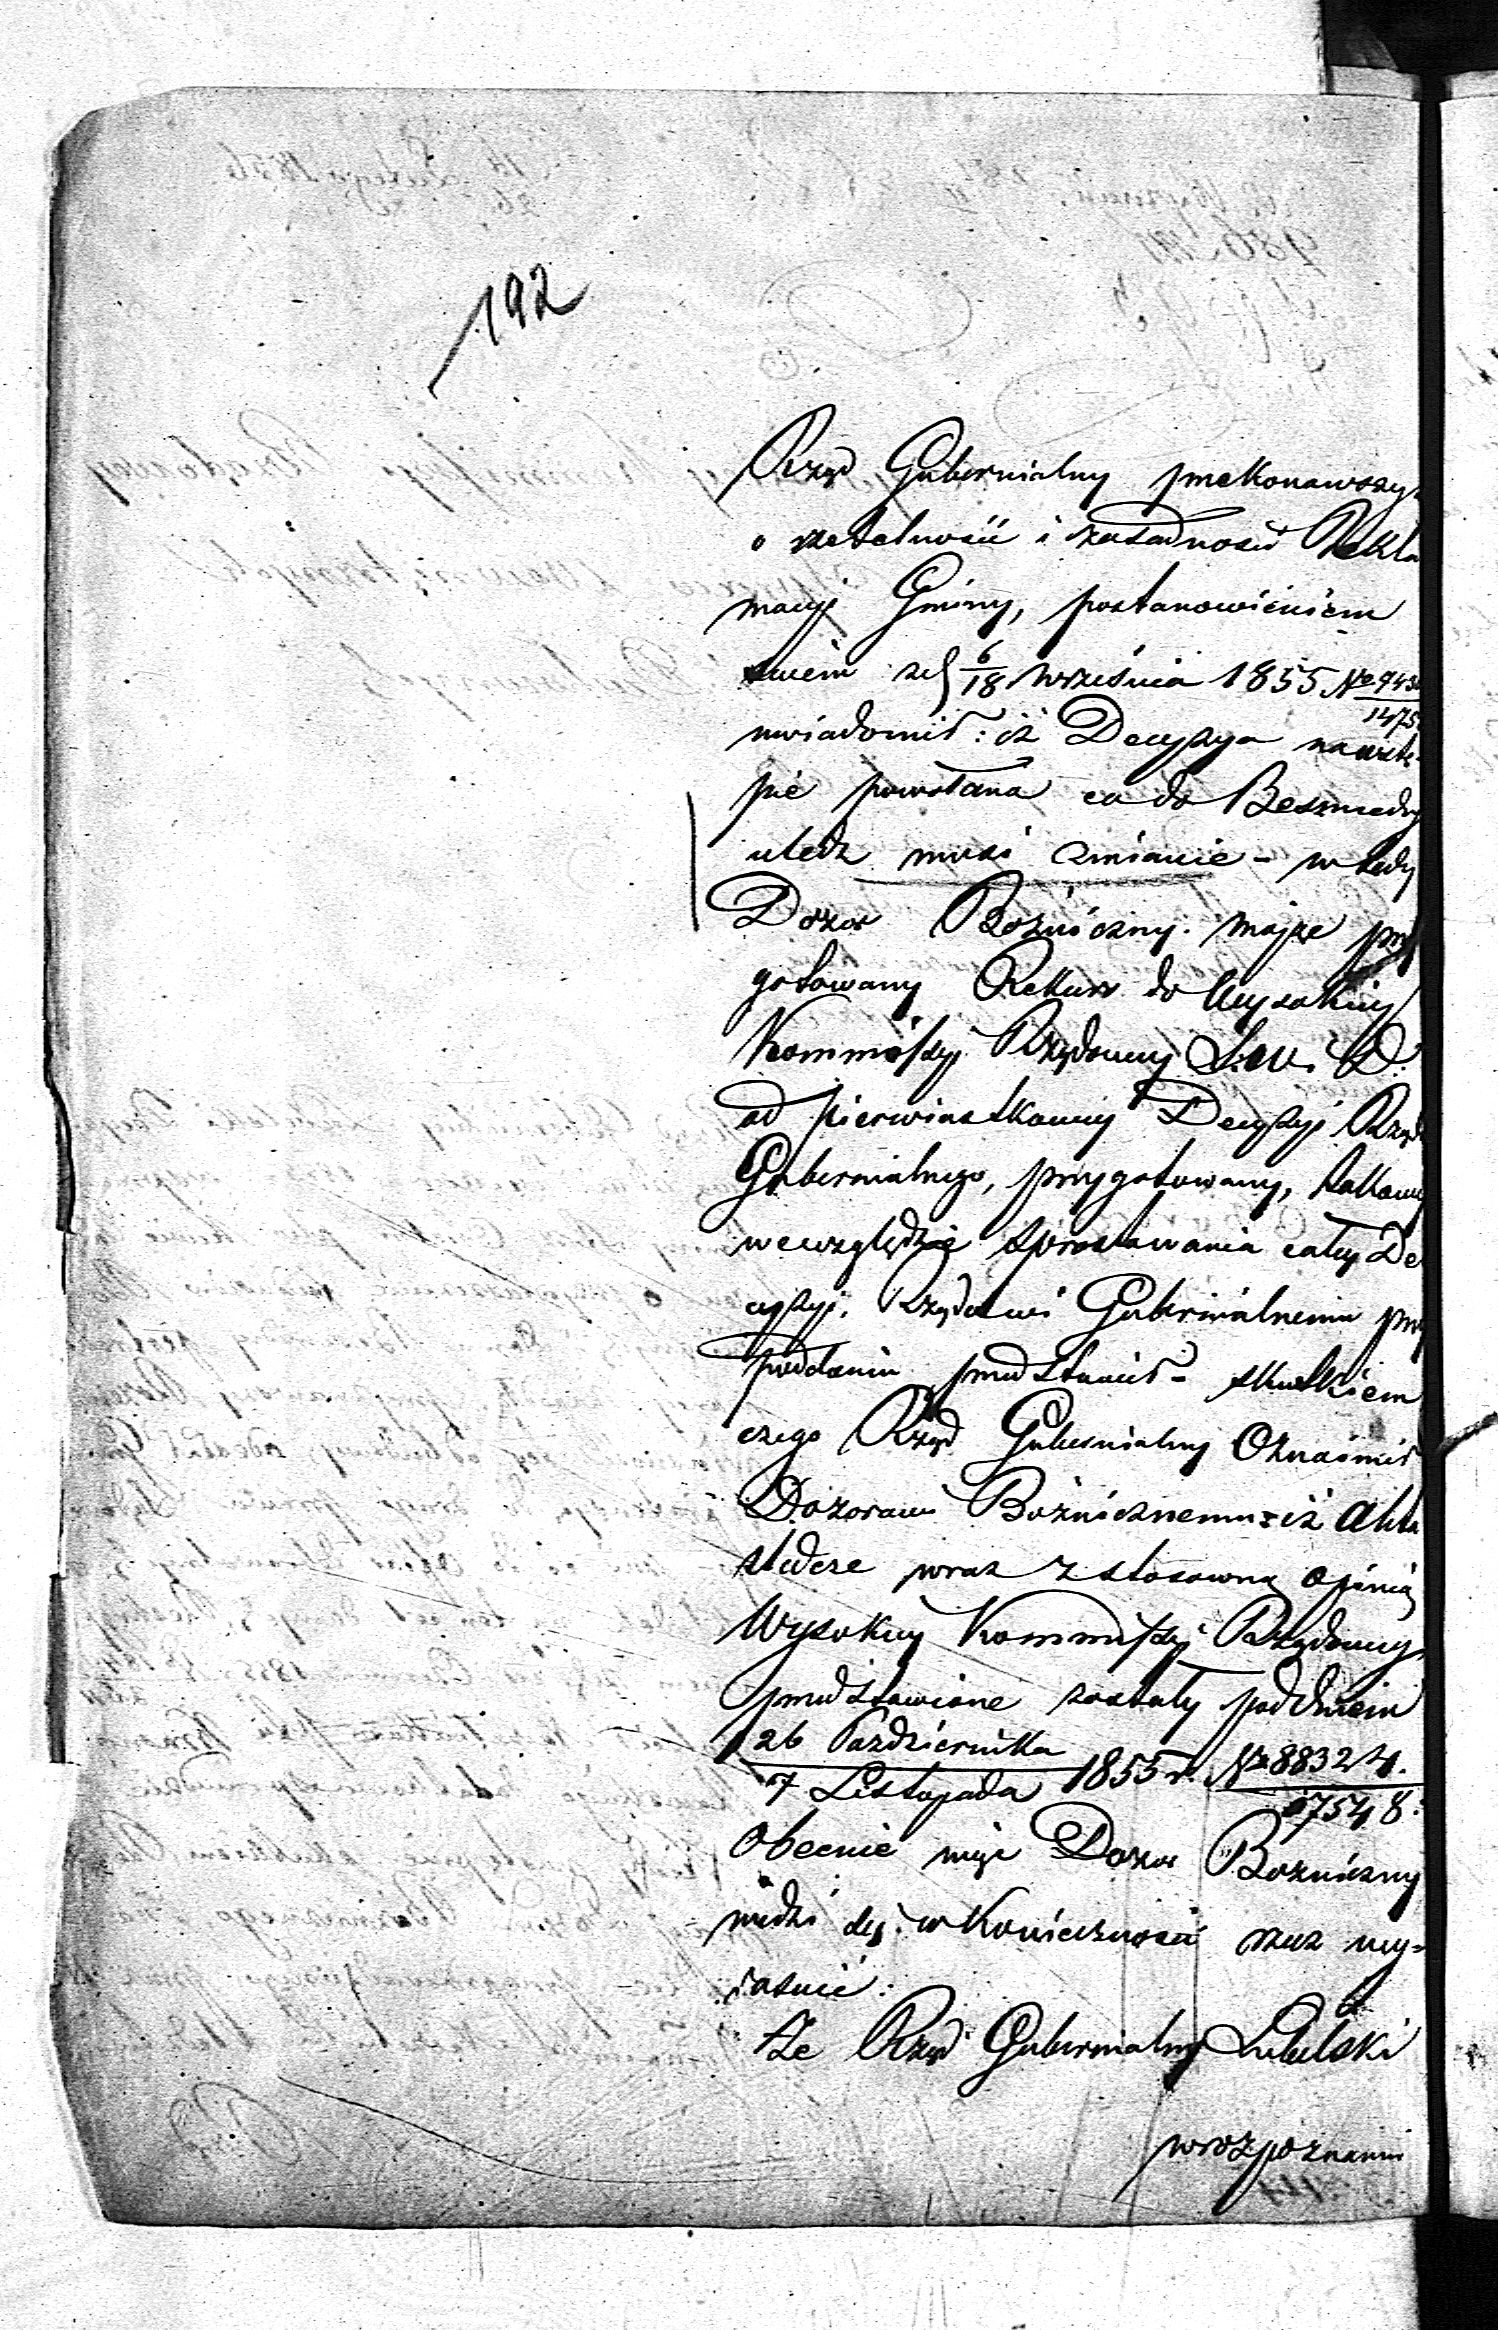 192
Rząd Gubernialny przekonawszy
o rzetelności i zasadności Rekla
macyi Gminy, postanowieniem
swém z d 6/18 Września 1855 No 943
1475
uwiadomił: iż Decyzya na wstę-
pie powołana co do Besmedry
uledz musi zmianie - wtedy
Dozor Bożniczny mając przy
gotowany Rekurs do Wysokiey
Kommissyi Rządowey S. W. i D.
od pierwiastkowey Decyzyi Rządu
Gubernialnego, przygotowany, takowy
we względzie sprostowania całey De
cyzyi, Rządowi Gubernialnemu przy
podaniu przedstawił - skutkiem
czego Rząd Gubernialny Oznaimił
Dozorowi Bożnicznemu iż Akta
śledcze wraz z stosowną opinią
Wysokiey Kommissyi Rządowey
przedstawione zostały pod dniem
26 Października / 7 Listopada 1855 r. No 88324.
07548.
Obecnie więc Dozor Bożniczny
widzi się w konieczności rzecz wy-
iaśnić:
Że Rząd Gubernialny Lubelski
w rozpoznaniu